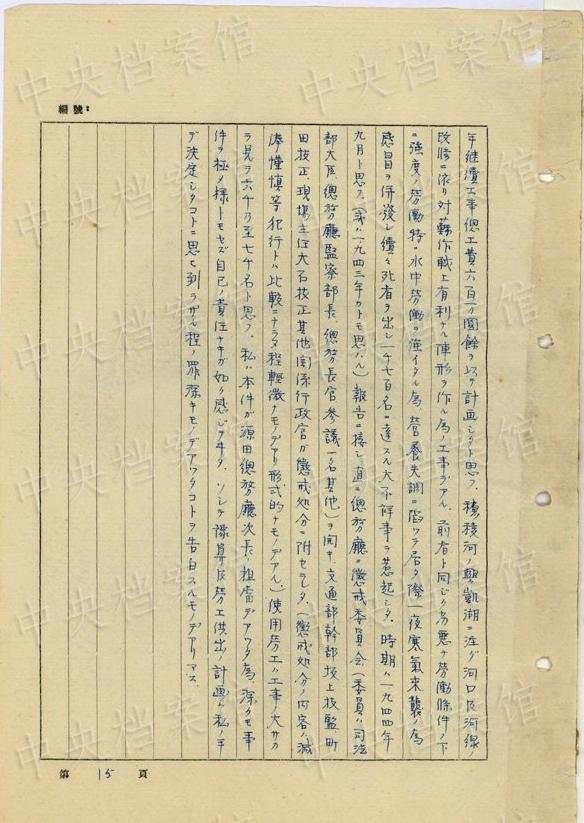 編號：
年継續工事総工費六百万圓餘ヲ以テ計画シタト思フ、穆稜河ノ興凱湖ニ注グ河口及河線ノ
改修ニ依リ対蘇作戦上有利ナル陣形ヲ作ル為ノ工事デアル、前者ト同ジク劣悪ナ労働條件ノ下
ニ強度ノ労働特ニ水中労働ヲ強イタル為、営養失調ニ陥ツテ居タ際一夜寒気来襲ノ為
感冒ヲ併発シ續々死者ヲ出シ一千七百名ニ達スル大不祥事ヲ惹起シタ。時期ハ一九四四年
九月ト思フ。（或ハ一九四三年カトモ思ハル）報告ニ接シ直ニ総務廳ニ懲戒委員会（委員ハ司法
部大臣総務廳監察部長総務長官参議一名其他）ヲ開キ交通部幹部坂上技監町
田技正、現場主任大石技正其他関係行政官ガ懲戒処分ニ附セラレタ、（懲戒処分ノ内容ハ減
俸謹慎等犯行トハ比較ニナラヌ程軽微ナモノデアリ形式的ナモノデアル。）使用労工ハ工事ノ大サカ
ラ見テ六千乃至七千名ト思フ。私ハ本件ガ源田総務廳次長ノ担当デアツタ為、深クモ事
件ヲ極メ様トモセズ自己ノ責任ナキガ如ク感ジテヰタ、ソシテ豫算及労工供出ノ計画ハ私ノ手
デ決定シタコトニ思ヒ到ラザル程ノ罪深キモノデアツタコトヲ告白スルモノデアリマス。
第 15 頁
中央档案馆